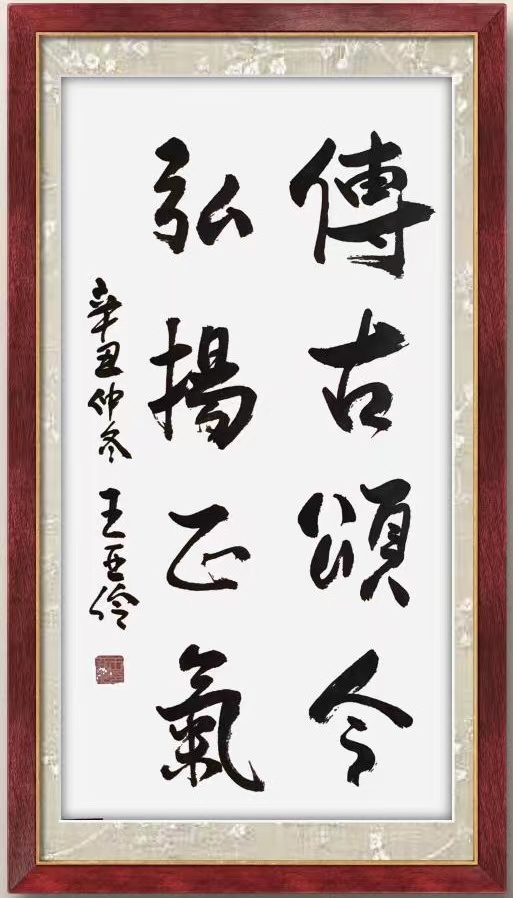 傳古頌今
弘揚正氣
辛丑仲冬
王亚伶